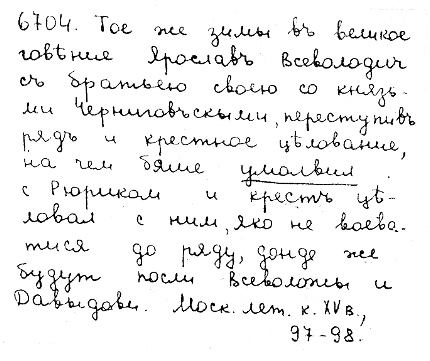 6704. Тое же зимы въ великое
говѣние Ярославъ Всеволодич
съ братьею своею со князь-
ми Черниговъскыми, переступивъ
рядъ и крестное цѣлование,
на чем бяше умолвил
с Рюриком и крестъ цѣ-
ловал с ним, яко не воева-
тися до ряду, донде же
будут посли Всеволожи и
Давыдови. Моск. лет. к. XV в.,
97-98.